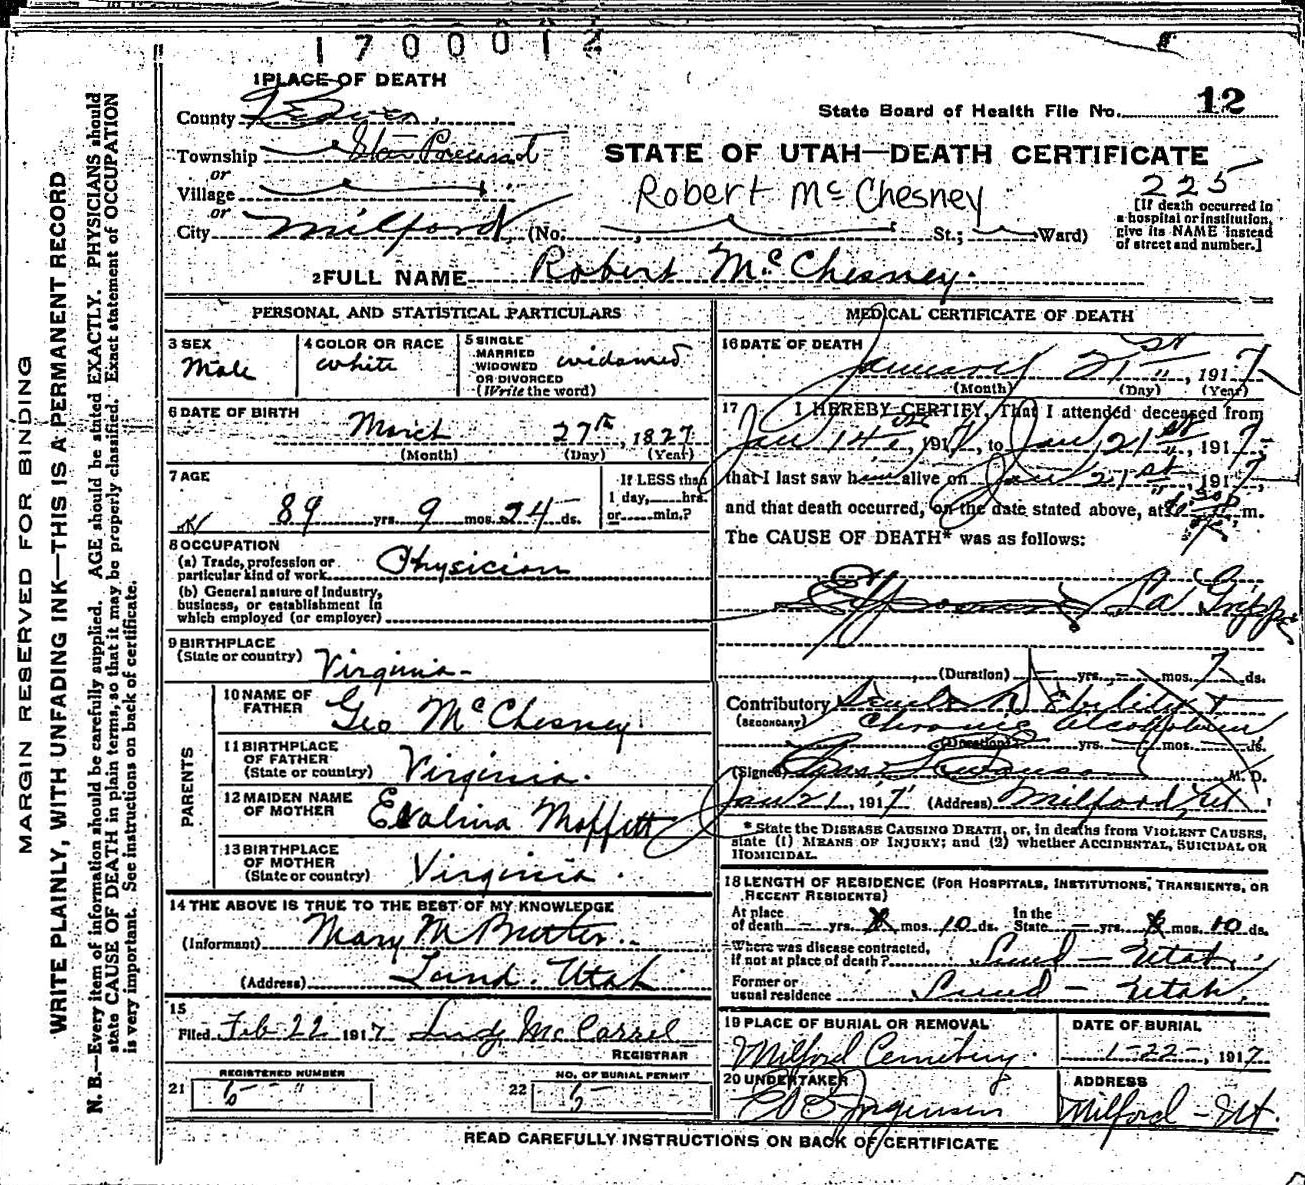 1700012
1 PLACE OF DEATH
County Beaver
State Board of Health File No. 12
Township Star Precinct
or
Village
or
City Milford (No. St.; Ward)
STATE OF UTAH—DEATH CERTIFICATE
Robert McChesney
225
[If death occurred in
a hospital or institution,
give its NAME instead
of street and number.]
2 FULL NAME Robert McChesney.
PERSONAL AND STATISTICAL PARTICULARS
3 SEX
Male
4 COLOR OR RACE
White
5 SINGLE
MARRIED
WIDOWED
OR DIVORCED
(Write the word)
widowed
6 DATE OF BIRTH
March 27th, 1827
(Month) (Day) (Year)
7 AGE
89 yrs. 9 mos. 24 ds.
If LESS than
1 day, hrs.
or min.?
8 OCCUPATION
(a) Trade, profession or
particular kind of work Physician
(b) General nature of Industry,
business, or establishment in
which employed (or employer)
9 BIRTHPLACE
(State or country) Virginia
PARENTS
10 NAME OF
FATHER Geo McChesney
11 BIRTHPLACE
OF FATHER
(State or country) Virginia.
12 MAIDEN NAME
OF MOTHER Evalina Moffett
13 BIRTHPLACE
OF MOTHER
(State or country) Virginia.
14 THE ABOVE IS TRUE TO THE BEST OF MY KNOWLEDGE
(Informant) Mary M
(Address) Lund. Utah
15
Filed Feb 22 1917 McCarrel
REGISTRAR
21 REGISTERED NUMBER
22 NO. OF BURIAL PERMIT
MEDICAL CERTIFICATE OF DEATH
16 DATE OF DEATH
January 21st, 1917
(Month) (Day) (Year)
17 I HEREBY CERTIFY, That I attended deceased from
Jan 14th, 1917, to Jan 21st, 1917,
that I last saw him alive on Jan 21st, 1917,
and that death occurred, on the date stated above, at m.
The CAUSE OF DEATH* was as follows:
La Grippe
(Duration) yrs. mos. 7 ds.
Contributory Senile Debility +
(SECONDARY) Chronic alcoholism
(Duration) yrs. mos. ds.
(Signed) M. D.
Jan 21, 1917 (Address) Milford, Ut
* State the DISEASE CAUSING DEATH, or, in deaths from VIOLENT CAUSES,
state (1) MEANS OF INJURY; and (2) whether ACCIDENTAL, SUICIDAL OR
HOMICIDAL.
18 LENGTH OF RESIDENCE (FOR HOSPITALS, INSTITUTIONS, TRANSIENTS, OR
RECENT RESIDENTS)
At place
of death yrs. mos. 10 ds.
In the
State yrs. mos. 10 ds.
Where was disease contracted,
if not at place of death? Lund - Utah.
Former or
usual residence Lund - Utah.
19 PLACE OF BURIAL OR REMOVAL
Milford Cemetery.
DATE OF BURIAL
1-22-, 1917
20 UNDERTAKER
Jorgensen
ADDRESS
Milford - Ut.
READ CAREFULLY INSTRUCTIONS ON BACK OF CERTIFICATE
MARGIN RESERVED FOR BINDING
WRITE PLAINLY, WITH UNFADING INK—THIS IS A PERMANENT RECORD
N. B.—Every item of information should be carefully supplied. AGE should be stated EXACTLY. PHYSICIANS should
state CAUSE OF DEATH in plain terms, so that it may be properly classified. Exact statement of OCCUPATION
is very important. See instructions on back of certificate.